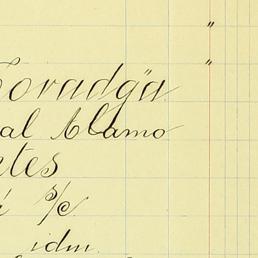 "
" 
Covadga
al Alamo
etes
á s/c
idm